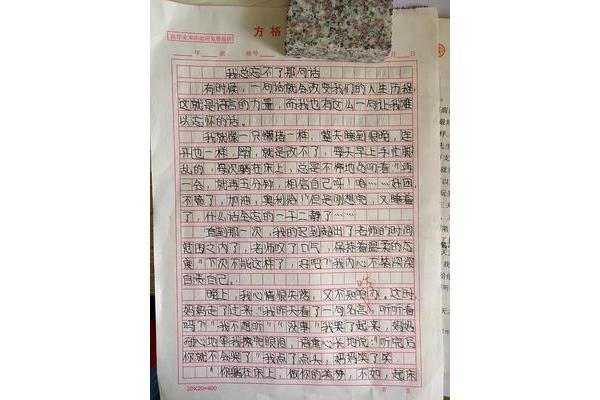 方格
年 班 编号
月 日
我总忘不了那句话
有时候，一句话就会改变我们的人生历程
这就是语言的力量，而我也有这么一句让我难
以忘怀的话。
我就像一只懒猪一样，整天睡到很晚，连
一样，唱，就是改不了，每天早上手忙脚
乱的，每次躺在床上，总是不停地念叨着“再
一会，就再五分钟，相信自己呀！哈……好困
不能了，加油，奥利给！”但是刚想完，又睡着
了，什么话全忘的一干二静了……
直到那一次，我的迟到超出了老师的时间
范围之内了，老师叹了口气，保持着温柔的态
度“下次不能这样了，好吧？”我内心不禁深深
自责自己。
晚上，我心情很失落，又不知咋办。这时
妈妈走了过来“我昨天看了一句名言，听听看
吗？”“我不想听”“没事”我哭了起来，妈妈
耐心地拿我擦泡眼泪，语重心长地说：“听完后
你就不会哭了”我点了点头，妈妈笑了笑
“你躺在床上，做你的美梦，不如，起床
20×20=400